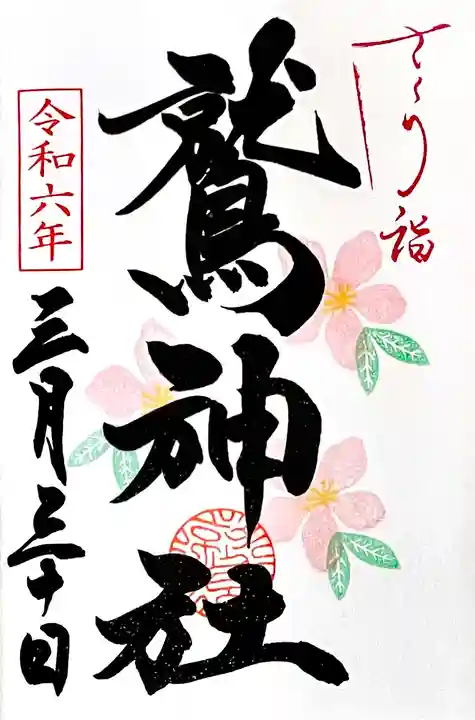 さくら詣
鷲神社
令和六年
三月三十日